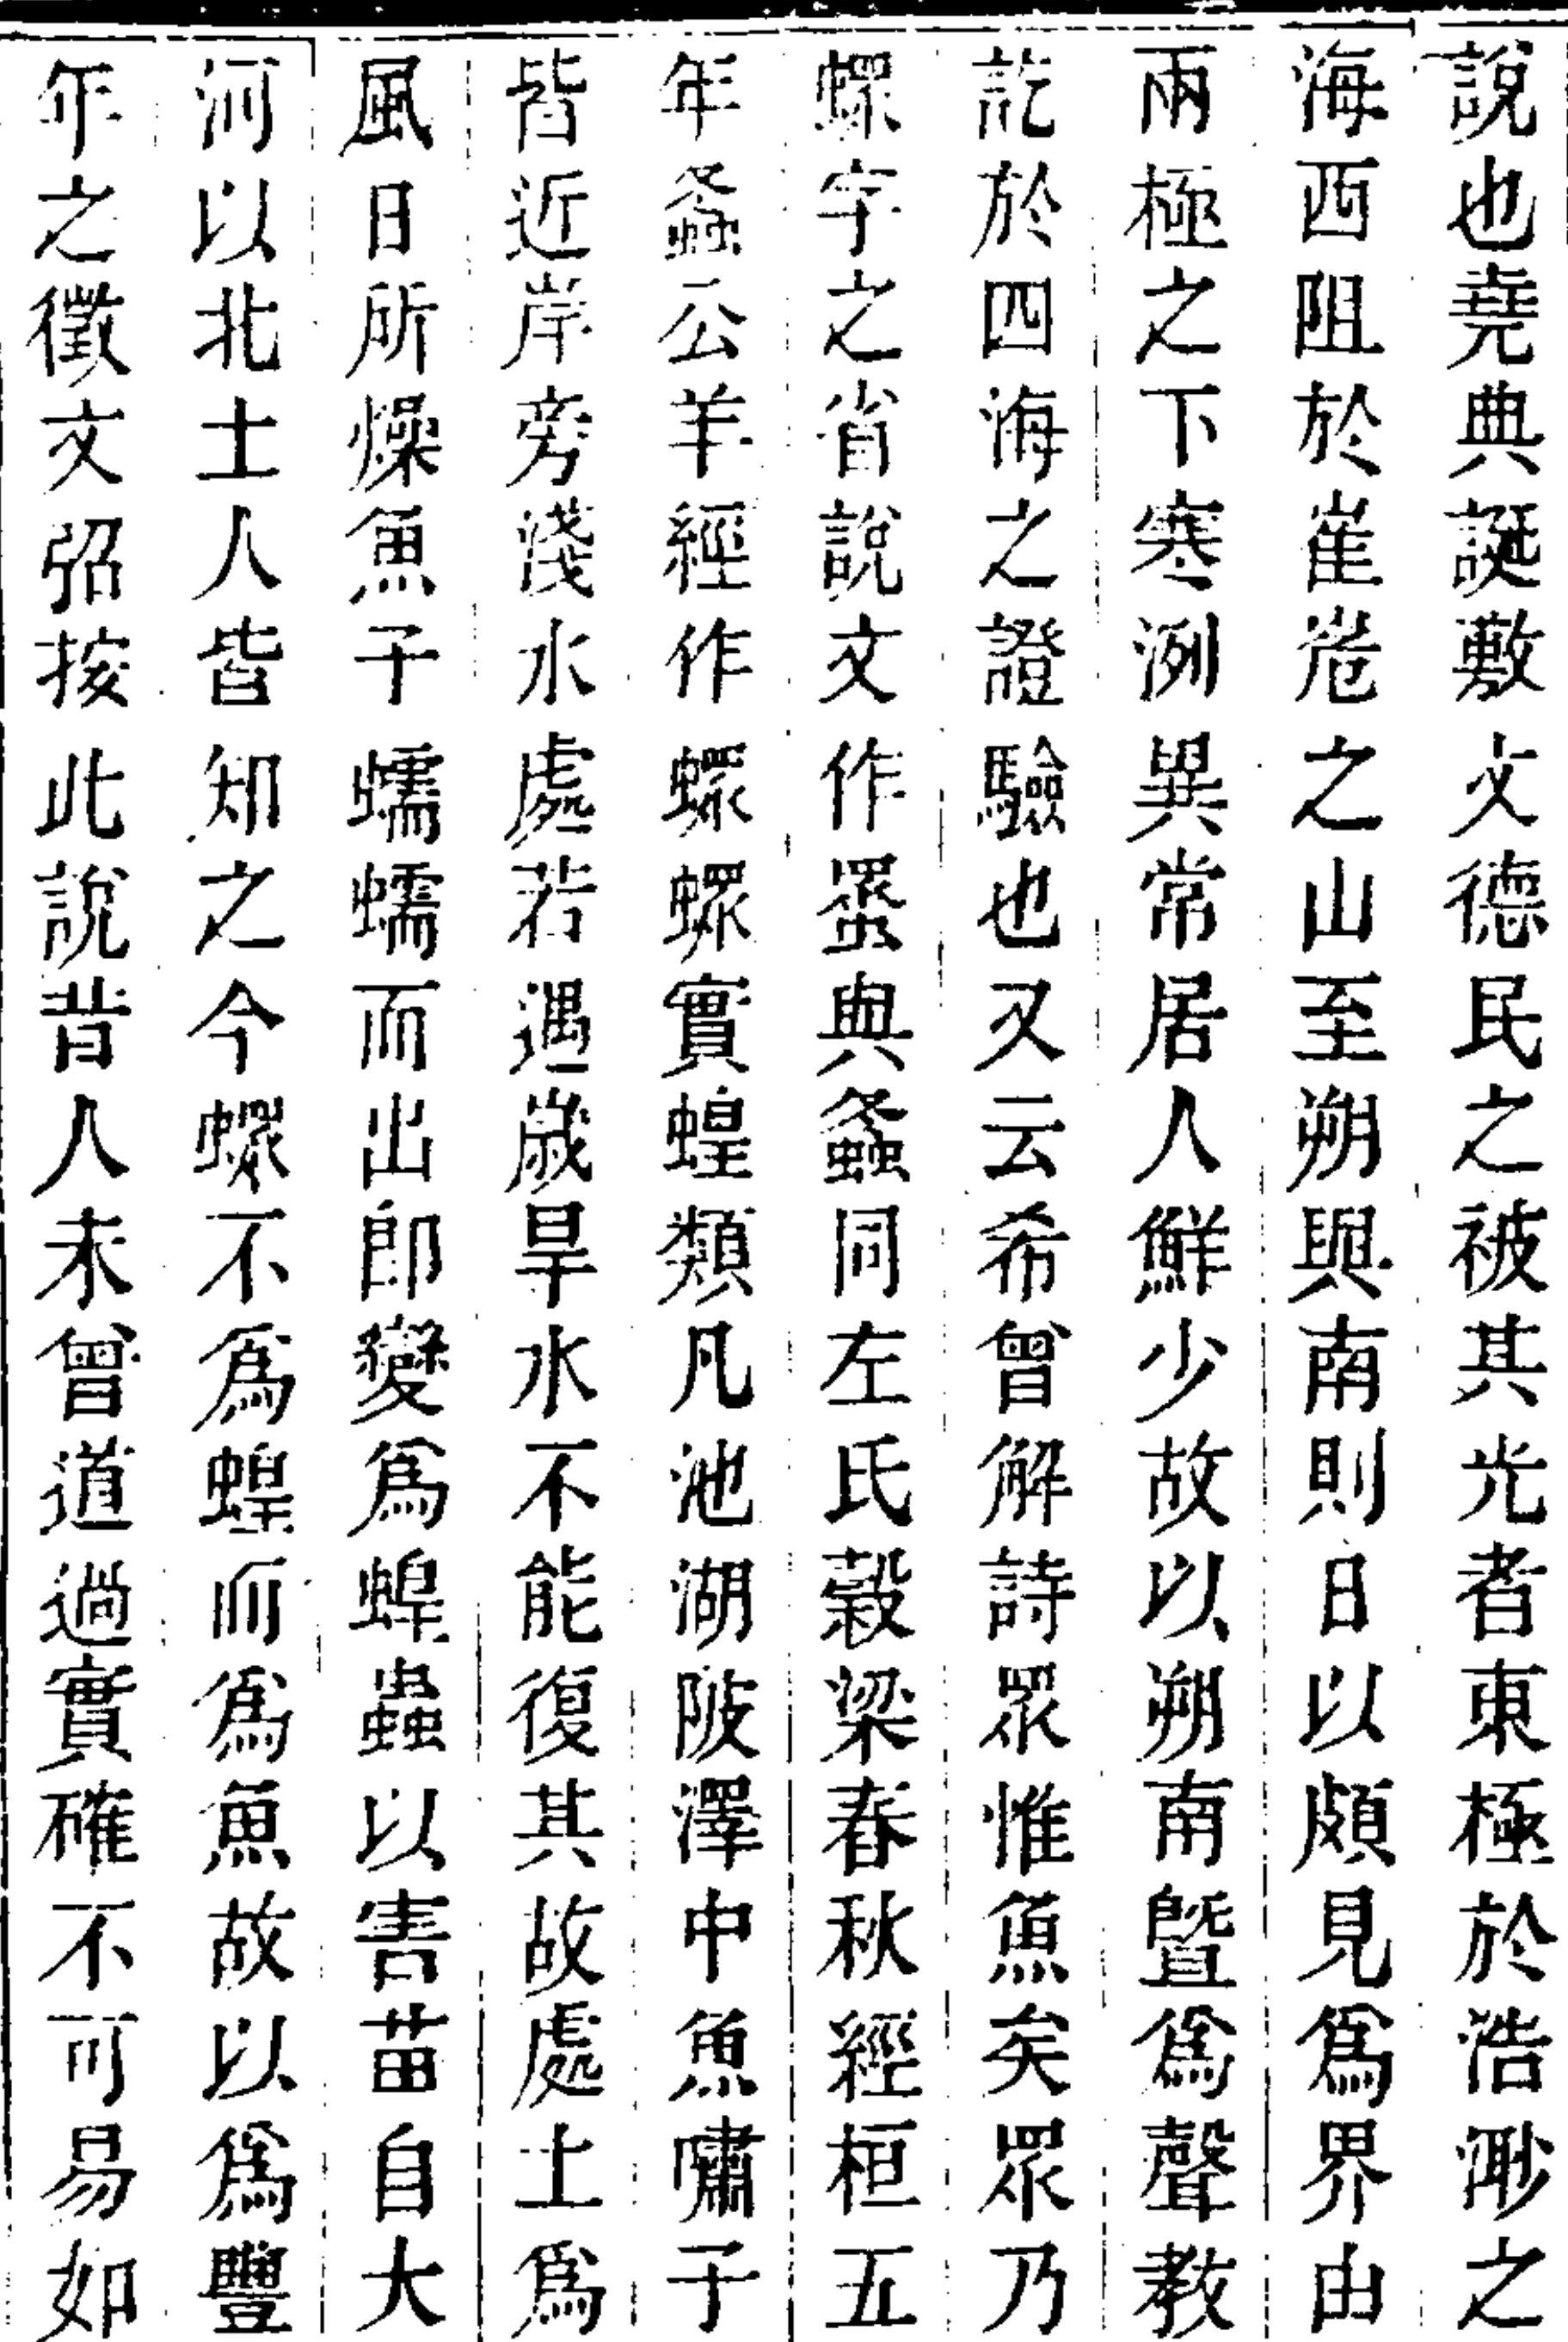 說也堯典誕敷文德民之被其光者東極於浩渺之
海西阻於崔嵬之山至朔與南則日以頗見爲界由
兩極之下寒冽異常居人鮮少故以朔南曁爲聲教
訖於四海之證驗也又云希曾解詩眾惟魚矣眾乃
䗥字之省說文作䗥與螽同左氏穀梁春秋經桓五
年螽公羊經作䗥䗥實蝗類凡池湖陂澤中魚嘯子
皆近岸旁淺水處若遇歲旱水不能復其故處土爲
風日所燥魚子蠕蠕而出卽變爲蝗蟲以害苗自大
河以北土人皆知之今䗥不爲蝗而爲魚故以爲豐
年之徵文弨按此說昔人未曾道過實確不可易如